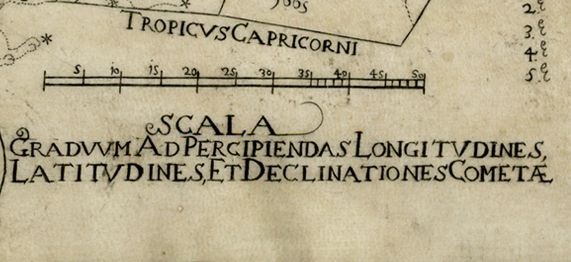 TROPICVS CAPRICORNI
2.
3.
4.
5.
5 10 15 20 25 30 35 40 45 50
SCALA
GRADVVM AD PERCIPIENDAS LONGITVDINES,
LATITVDINES, ET DECLINATIONES COMETÆ